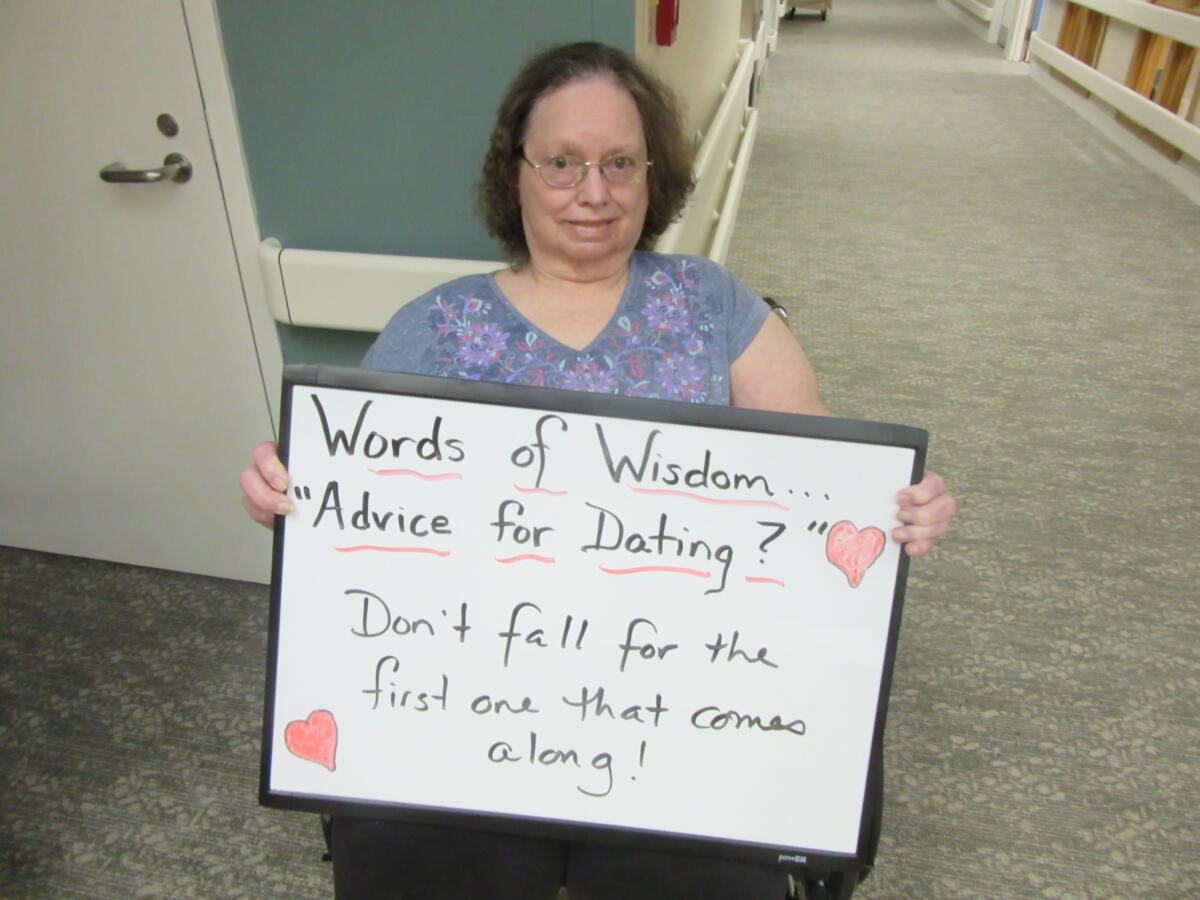 Words of Wisdom...
"Advice for Dating?"
Don't fall for the
first one that comes
along!